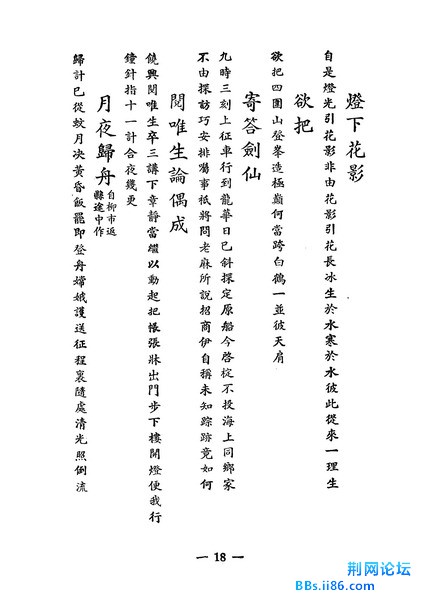 燈下花影
自是燈光引花影非由花影引花長冰生於水寒於水彼此從來一理生
欲把
欲把四圍山登峯造極巔何當跨白鶴一並彼天肩
寄答劍仙
九時三刻上征車行到龍華日已斜探定原船今啓椗不投海上同鄉家
不由探訪巧安排囑事祇將問老麻所說招商伊自稱未知踪跡竟如何
閱唯生論偶成
饒興閱唯生卒三講下章靜當繼以動起把帳張牀出門步下樓開燈便我行
鐘針指十一計合夜幾更
月夜歸舟自柳市返縣途中作
歸計已從蚊月决黃昏飯罷即登舟嫦娥護送征程裏隨處清光照倒流
— 18 —
荆网论坛
BBs.ii86.com